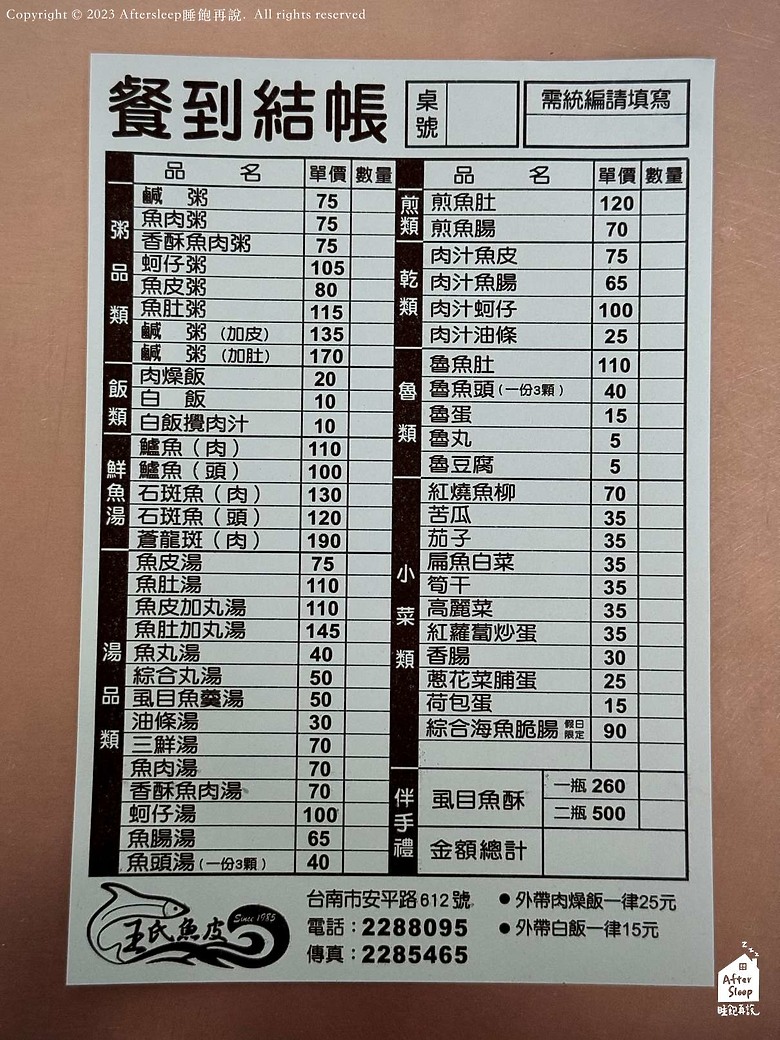 Copyright © 2023 Aftersleep睡飽再說. All rights reserved
餐到結帳
桌號
需統編請填寫
品 名 單價 數量
粥品類
鹹 粥 75
魚肉粥 75
香酥魚肉粥 75
蚵仔粥 105
魚皮粥 80
魚肚粥 115
鹹 粥 (加皮) 135
鹹 粥 (加肚) 170
飯類
肉燥飯 20
白 飯 10
白飯攪肉汁 10
鮮魚湯
鱸魚(肉) 110
鱸魚(頭) 100
石斑魚(肉) 130
石斑魚(頭) 120
蒼龍斑(肉) 190
湯品類
魚皮湯 75
魚肚湯 110
魚皮加丸湯 110
魚肚加丸湯 145
魚丸湯 40
綜合丸湯 50
虱目魚羹湯 50
油條湯 30
三鮮湯 70
魚肉湯 70
香酥魚肉湯 70
蚵仔湯 100
魚腸湯 65
魚頭湯(一份3顆) 40
品 名 單價 數量
煎類
煎魚肚 120
煎魚腸 70
乾類
肉汁魚皮 75
肉汁魚腸 65
肉汁蚵仔 100
肉汁油條 25
魯類
魯魚肚 110
魯魚頭(一份3顆) 40
魯蛋 15
魯丸 5
魯豆腐 5
小菜類
紅燒魚柳 70
苦瓜 35
茄子 35
扁魚白菜 35
筍干 35
高麗菜 35
紅蘿蔔炒蛋 35
香腸 30
蔥花菜脯蛋 25
荷包蛋 15
綜合海魚脆腸 假日限定 90
伴手禮
虱目魚酥
一瓶 260
二瓶 500
金額總計
王氏魚皮
Since 1985
台南市安平路612號
電話：2288095
傳真：2285465
●外帶肉燥飯一律25元
●外帶白飯一律15元
zzz
After Sleep
睡飽再說